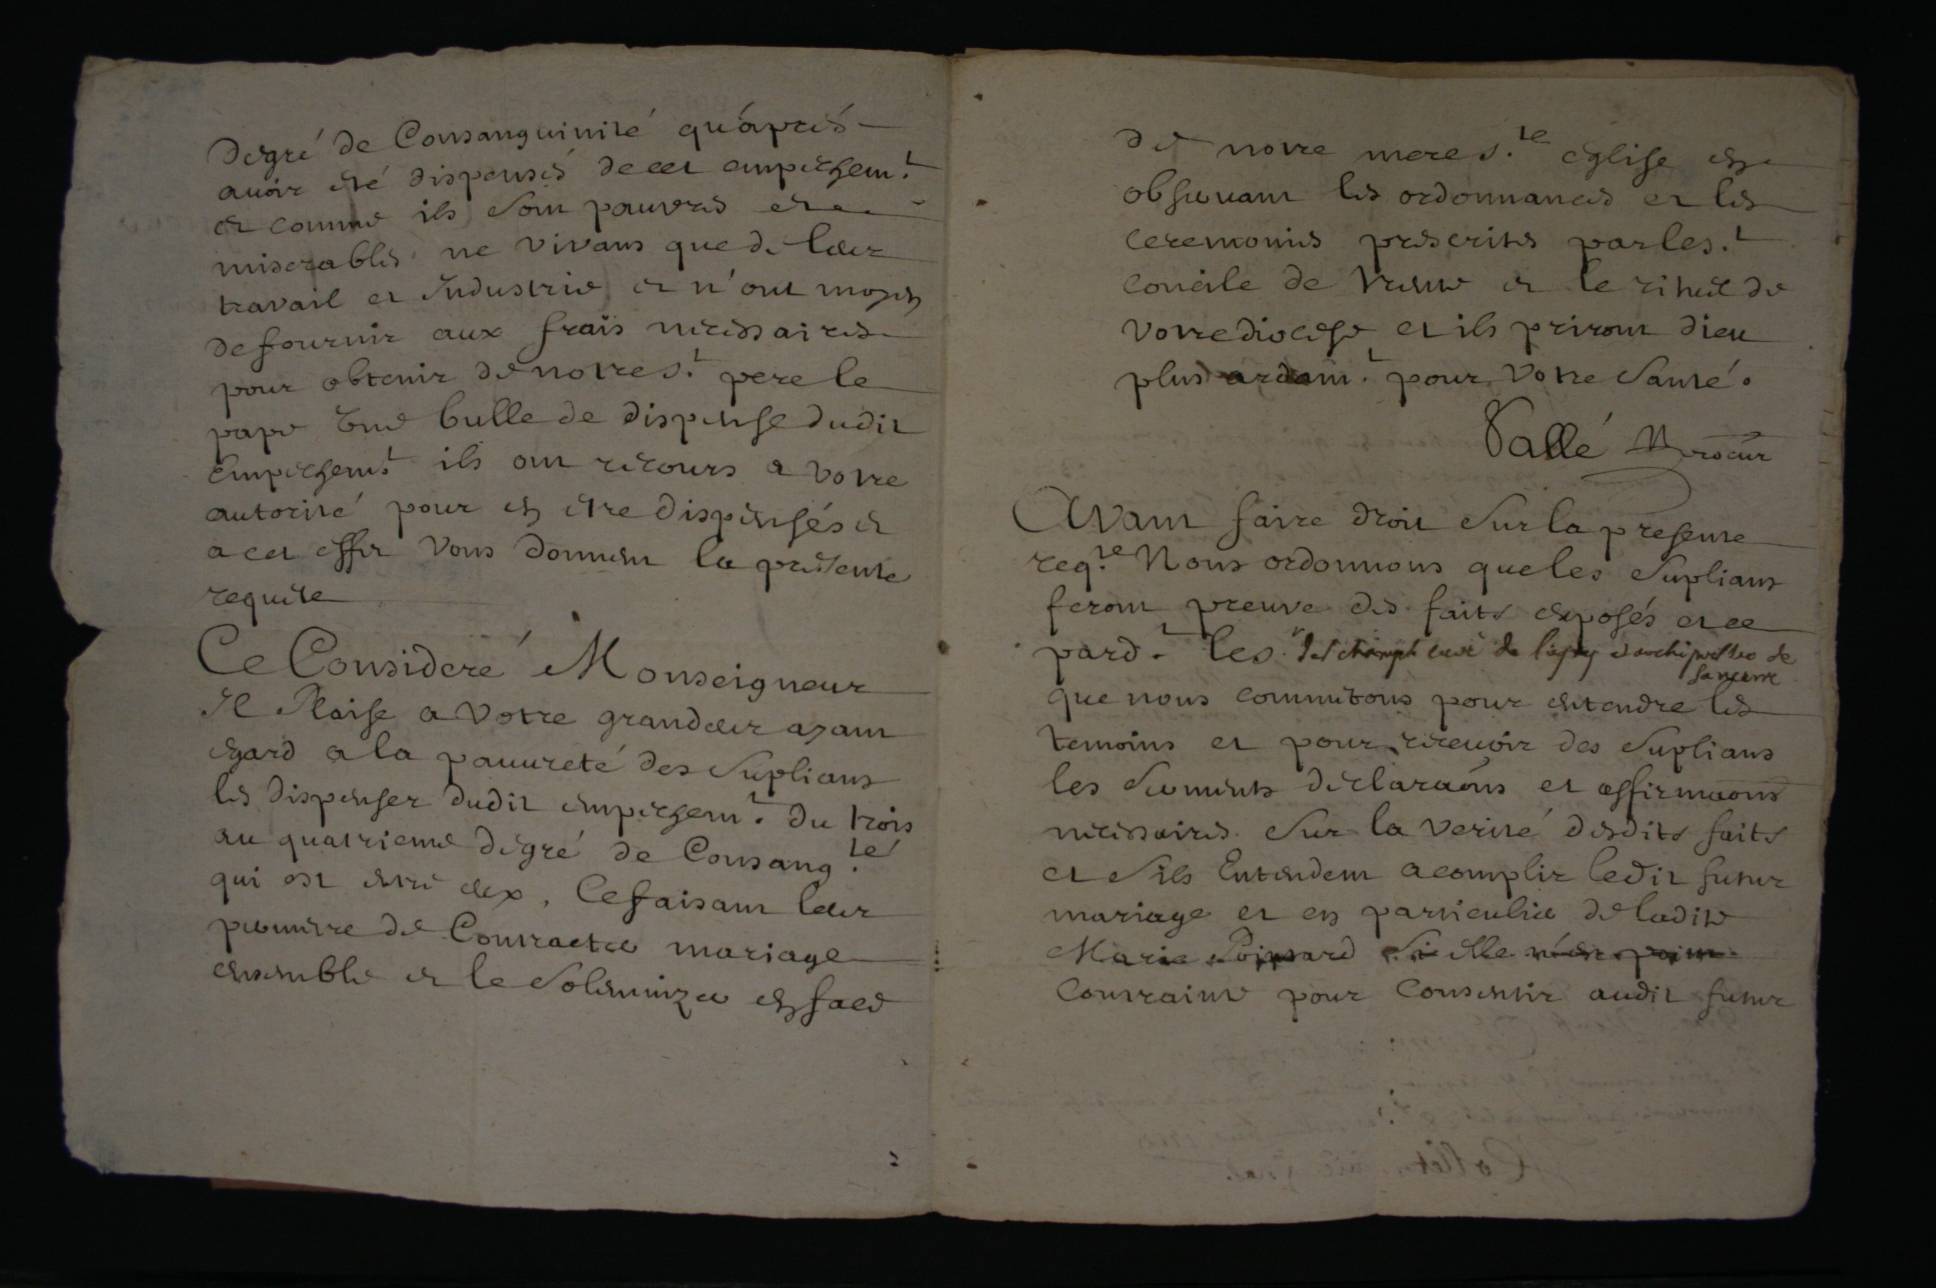 degré de Consanguinité qu'áprés
avoir eté dispensés de cet empéchem.t
et comme ils Sont pauvres et
miserables ne vivans que de leur
travail et Industrie et n'ont moyen
de fournir aux frais nécéssaires
pour obtenir de notre S.t pere le
pape Une bulle de dispense dudit
Empéchem.t ils ont recours a votre
autorité pour en etre dispensés et
a cet effet Vous donnent la présente
requéte
Ce Consideré Monseigneur
Il Plaise a Votre grandeur ayant
egard a la pauureté des Suplians
les dispenser dudit empéchem.t du trois
au quatrieme dégré de Consang.té
qui est entre eux, Ce faisant leur
permettre de Contracter mariage
ensemble et le Solemnizer en face
de notre mere S.te église en
observant les ordonnances et les
ceremonies préscrites par le s.t
concile de trente et le rituél de
votre diocese et ils priront dieu
plus ardam.t pour Votre Santé.
Vallé Procur
Avant faire droit Sur la presente
req.te Nous ordonnons que les Suplians
feront preuve des faits exposés et ce
pard.t les des champs curé de Sancerre
que nous commétons pour entendre les
temoins et pour recevoir des Suplians
les Serments déclaraõns et affirmaõns
nécéssaires Sur la verité desdits faits
et S'ils Entendent acomplir ledit futur
mariage et en particulier de ladite
Marie Si elle n'est point
Contrainte pour Consentir audit futur